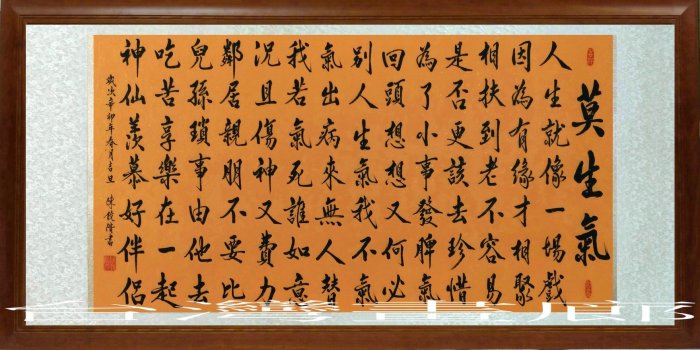 莫生氣
人生就像一場戲
因為有緣才相聚
相扶到老不容易
是否更該去珍惜
為了小事發脾氣
回頭想想又何必
別人生氣我不氣
氣出病來無人替
我若氣死誰如意
況且傷神又費力
鄰居親朋不要比
兒孫瑣事由他去
吃苦享樂在一起
神仙羨慕好伴侶
歲次辛卯年春月吉旦 陳 書